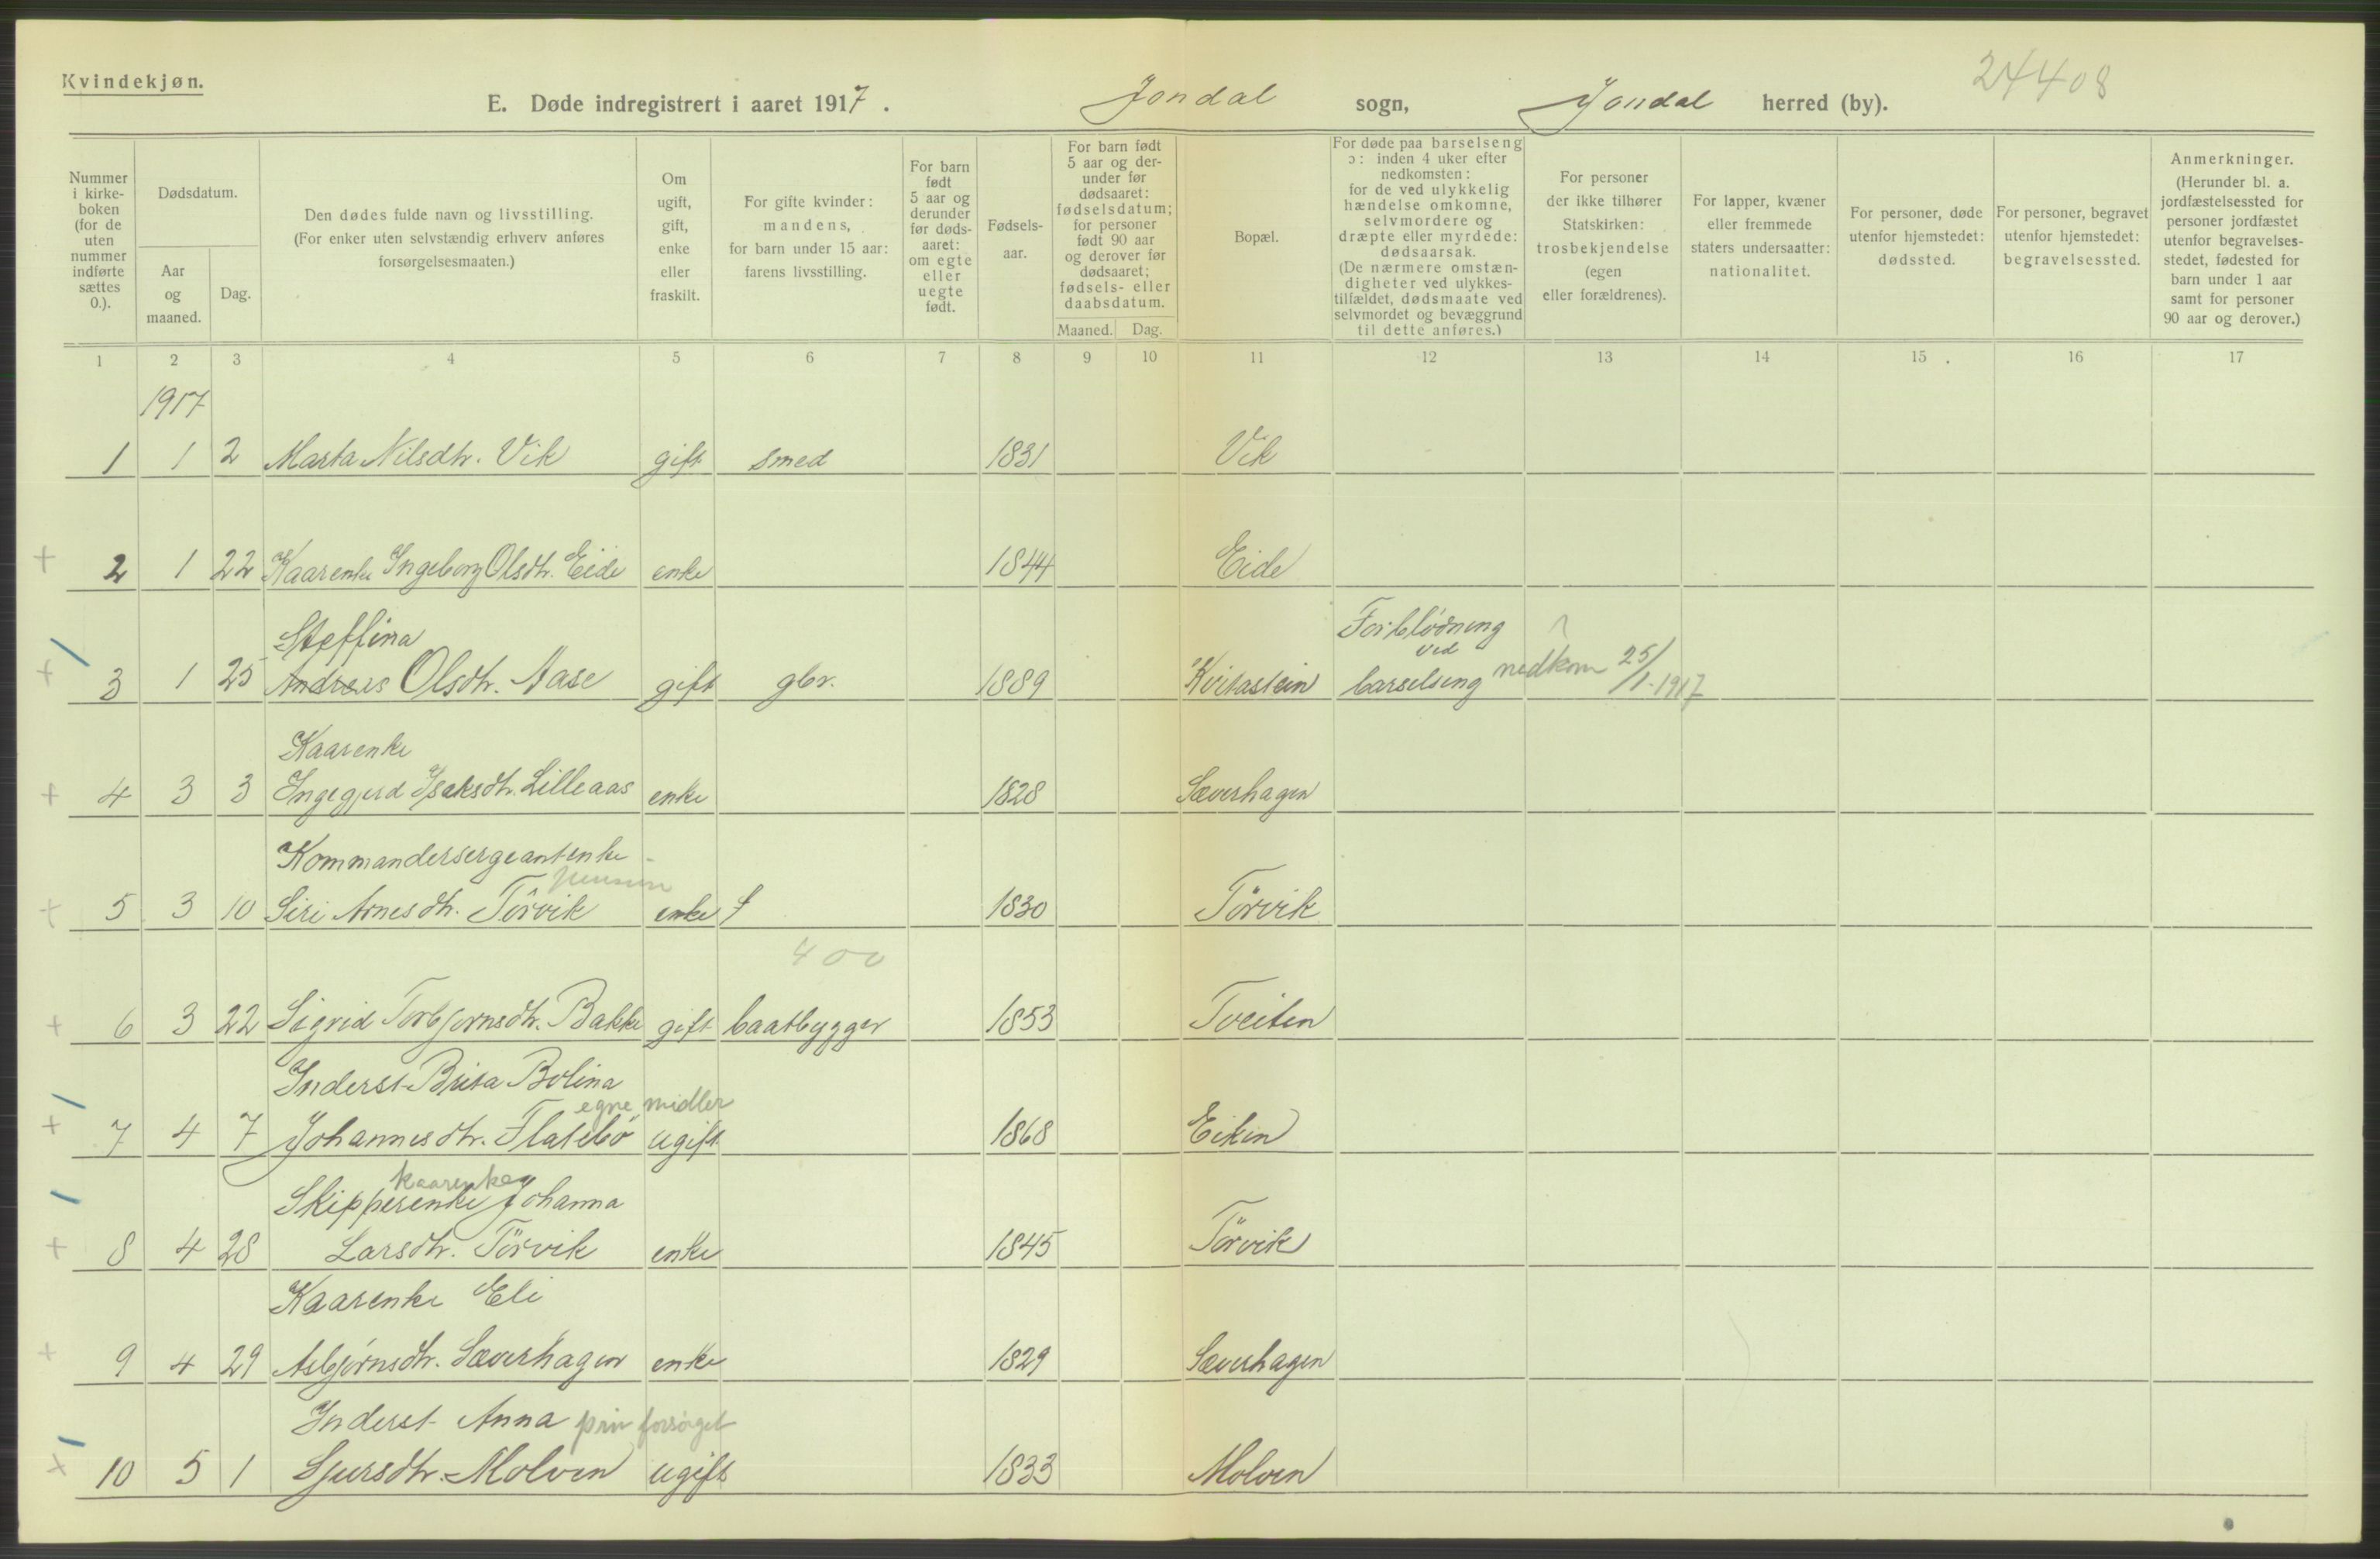 Kvindekjøn.
24408
E. Døde indregistrert i aaret 1917. Jondal sogn, Jondal herred (by).
Nummer i kirke-boken (for de uten nummer indførte sættes 0.).
Dødsdatum.
Aar og maaned.
Dag.
Den dødes fulde navn og livsstilling. (For enker uten selvstændig erhverv anføres forsørgelsesmaaten.)
Om ugift, gift, enke eller fraskilt.
For gifte kvinder: mandens, for barn under 15 aar: farens livsstilling.
For barn født 5 aar og derunder før døds-aaret: om egte eller uegte født.
Fødsels-aar.
For barn født 5 aar og der-under før dødsaaret: fødselsdatum; for personer født 90 aar og derover før dødsaaret; fødsels- eller daabsdatum.
Maaned. Dag.
Bopæl.
For døde paa barselseng ɔ: inden 4 uker efter nedkomsten: for de ved ulykkelig hændelse omkomne, selvmordere og dræpte eller myrdede: dødsaarsak. (De nærmere omstæn-digheter ved ulykkes-tilfældet, dødsmaate ved selvmordet og bevæggrund til dette anføres.)
For personer der ikke tilhører Statskirken: trosbekjendelse (egen eller forældrenes).
For lapper, kvæner eller fremmede staters undersaatter: nationalitet.
For personer, døde utenfor hjemstedet: dødssted.
For personer, begravet utenfor hjemstedet: begravelsessted.
Anmerkninger. (Herunder bl. a. jordfæstelsessted for personer jordfæstet utenfor begravelses-stedet, fødested for barn under 1 aar samt for personer 90 aar og derover.)
1 2 3 4 5 6 7 8 9 10 11 12 13 14 15 16 17
1917
1 1 2 Marta Nilsdtr. Vik gift smed 1831 Vik
+ 2 1 22 Kaarenke Ingeborg Olsdtr. Eide enke 1844 Eide
Steffina Forblødning
ved
+ 3 1 25 Andreas Olsdtr. Aase gift gbr. 1889 Kvitastein barselseng nedkom 25/1-1917
Kaarenke
+ 4 3 3 Ingegjerd Isaksdtr. Lilleaas enke 1828 Sæverhagen
Kommandersergeantenke
pension
+ 5 3 10 Siri Arnesdtr. Törvik enke 1830 Törvik
400
+ 6 3 22 Sigrid Torbjørnsdtr. Bakke gift baatbygger 1853 Tveiten
Inderst Brita Bolina
egne midler
+ 7 4 7 Johannesdtr. Flatebø ugift 1868 Eiken
kaarenke
Skipperenke Johanna
+ 8 4 28 Larsdtr. Törvik enke 1845 Törvik
Kaarenke Eli
+ 9 4 29 Asbjørnsdtr. Sæverhagen enke 1829 Sæverhagen
Inderst Anna priv forsørget
+ 10 5 1 Sjursdtr. Molven ugift 1833 Molven